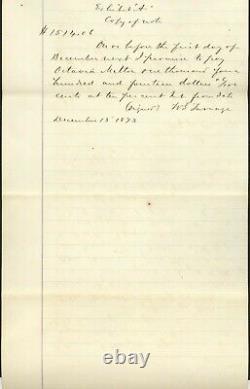 Exhibit "A"
Copy of note
$1514.06
On or before the first day of
December next I promise to pay
Octavia Miller one thousand five
hundred and fourteen dollars
cents at ten per cent Int. from date
Signed
December 13" 1873